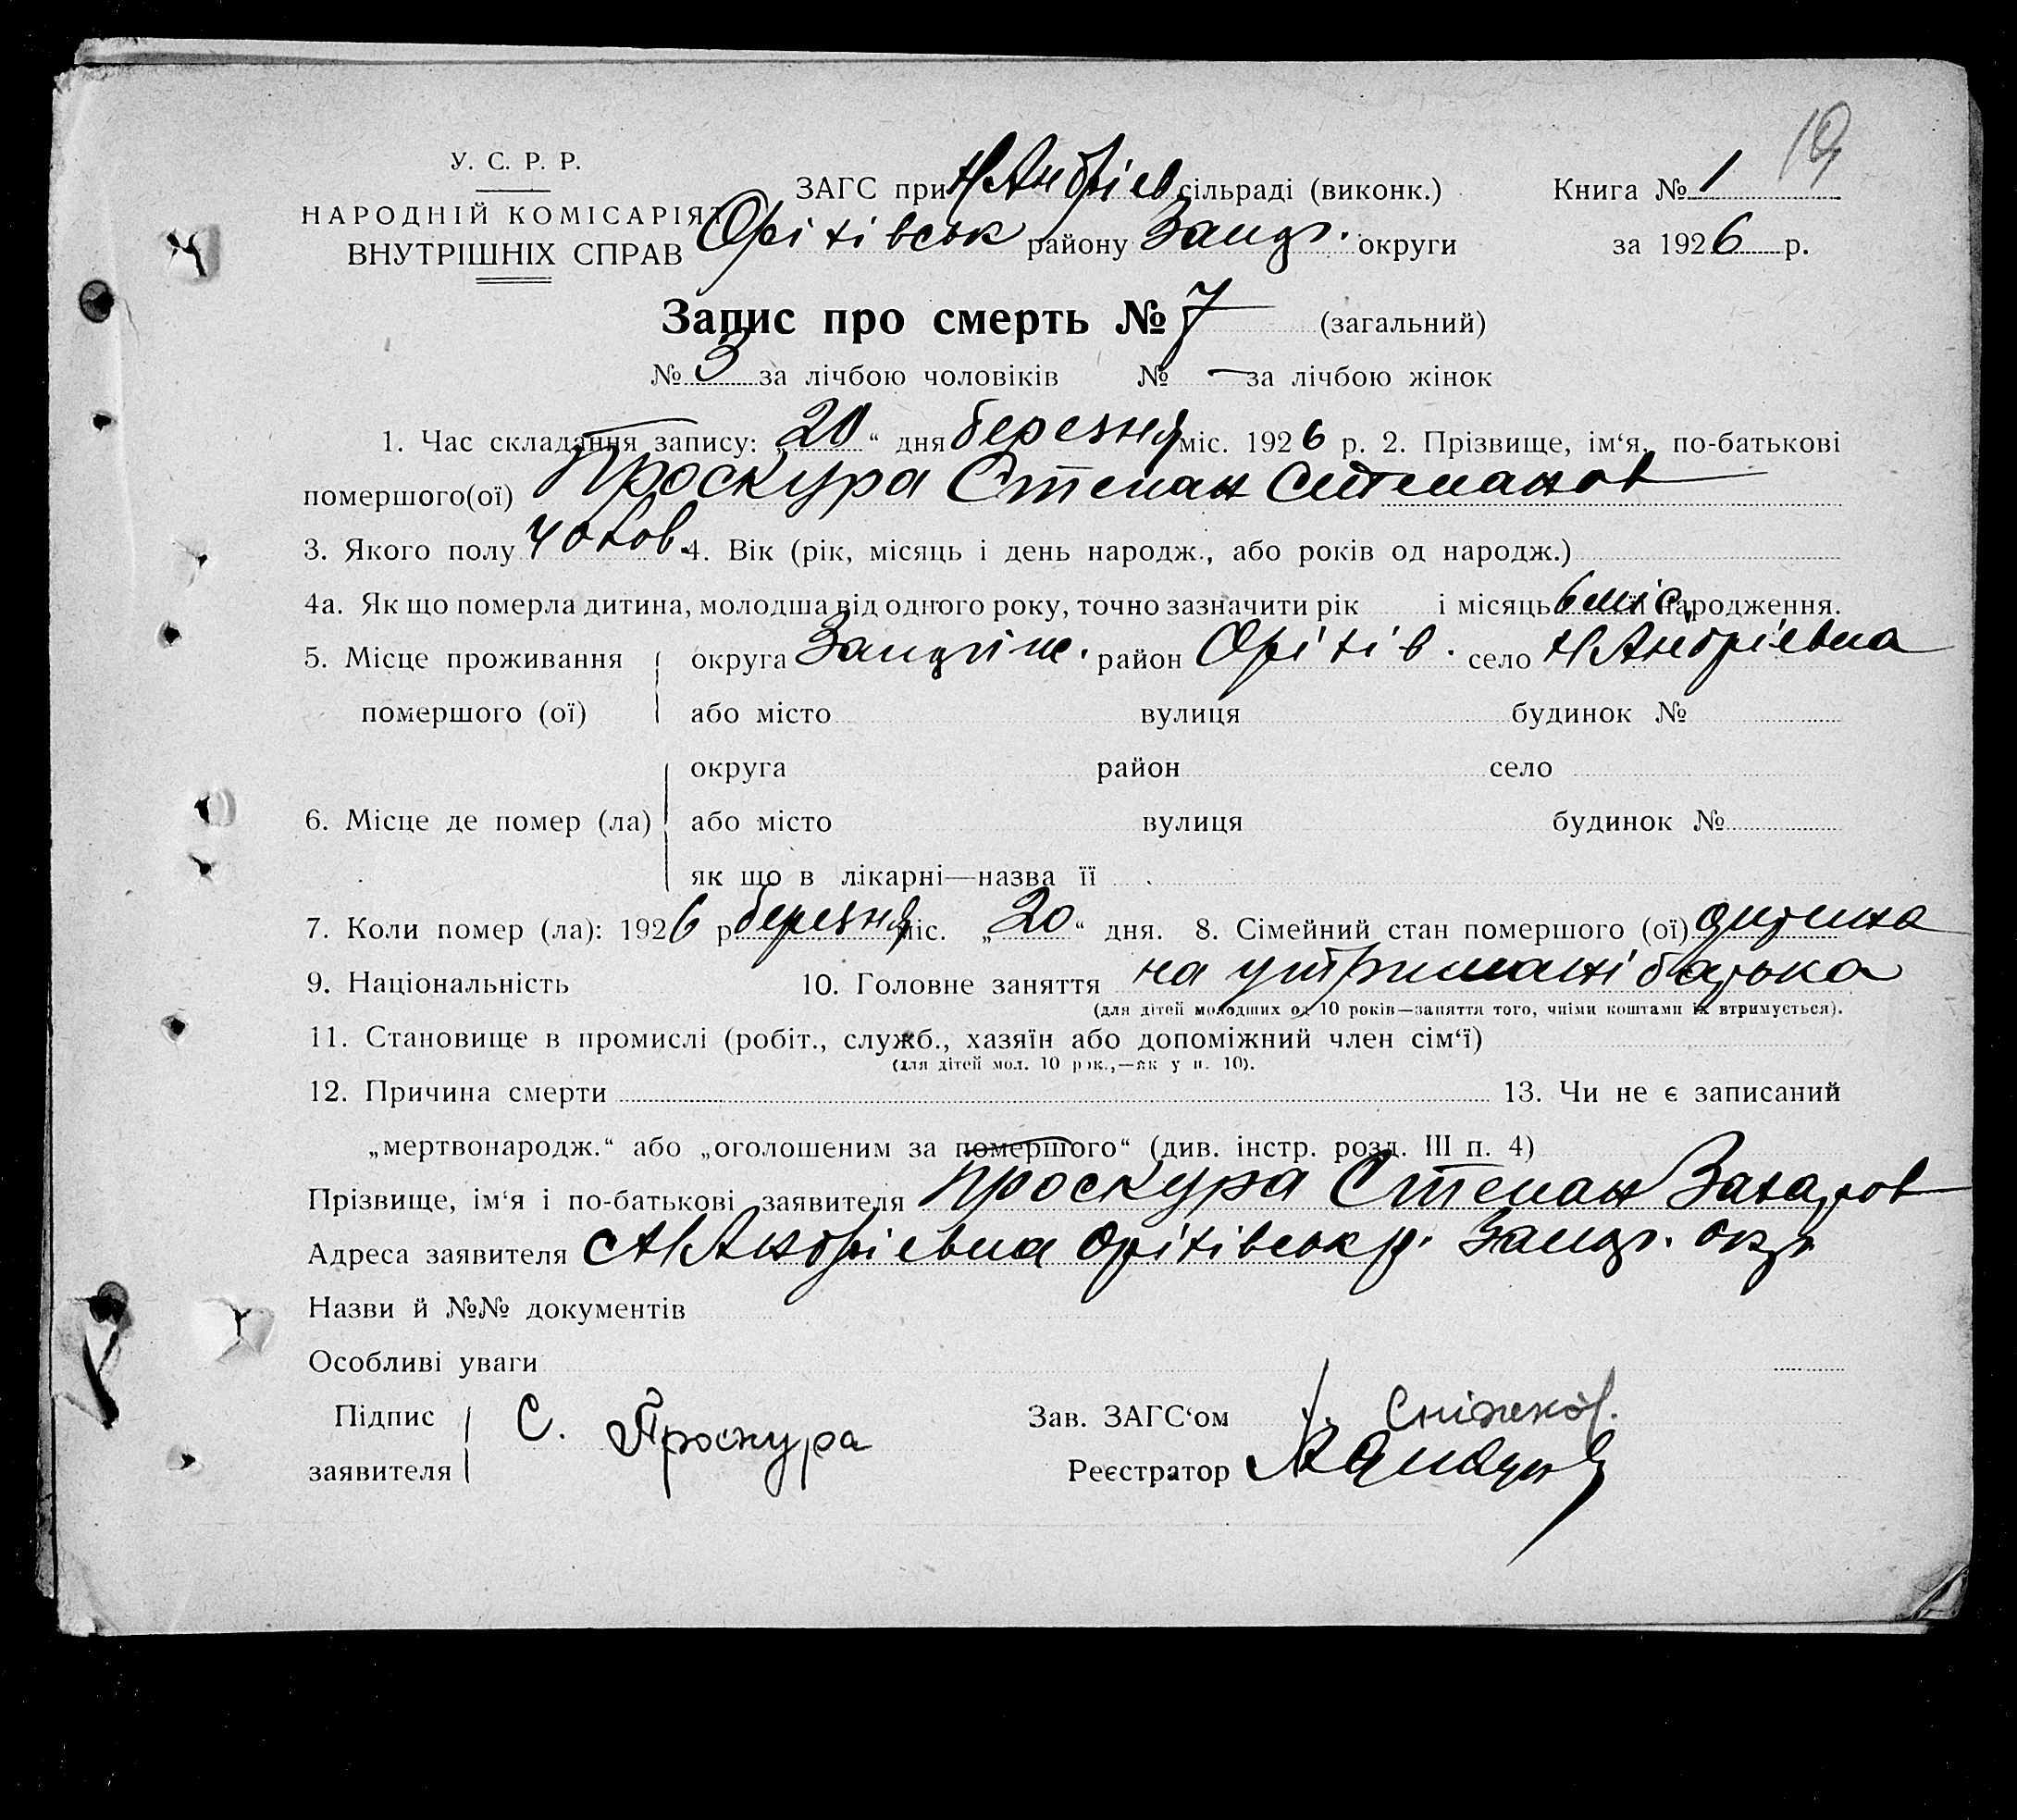 19
У. С. Р. Р.
НАРОДНІЙ КОМІСАРІЯТ
ВНУТРІШНІХ СПРАВ
ЗАГС при Н Андріев сільраді (виконк.) Книга № 1
Оріхівськ району Запор. округи за 1926 р.
Запис про смерть № 7 (загальний)
№ 3 за лічбою чоловіків № — за лічбою жінок
1. Час складання запису: „20“ дня березня міс. 1926 р. 2. Прізвище, ім‘я, по-батькові
помершого(ої) Проскура Степан Степанов
3. Якого полу чолов. 4. Вік (рік, місяць і день народж., або років од народж.)
4а. Як що померла дитина, молодша від одного року, точно зазначити рік і місяць 6 міс. її народження.
5. Місце проживання округа район Оріхів. село Н Андріевка
помершого (ої) або місто вулиця будинок №
округа район село
6. Місце де помер (ла) або місто вулиця будинок №
як що в лікарні—назва її
7. Коли помер (ла): 1926 р. березня міс. „20“ дня. 8. Сімейний стан помершого (ої) дитина
9. Національність 10. Головне заняття на утримані батька
(для дітей молодших од 10 років—заняття того, чиїми коштами їх втримується).
11. Становище в промислі (робіт., служб., хазяїн або допоміжний член сім‘ї)
(для дітей мол. 10 рок.,—як у п. 10).
12. Причина смерти 13. Чи не є записаний
„мертвонародж.“ або „оголошеним за помершого“ (див. інстр. розд. III п. 4)
Прізвище, ім‘я і по-батькові заявителя Проскура Степан Захаров
Адреса заявителя с Н Андріевка Оріхівськ р. Запор. окр
Назви й №№ документів
Особливі уваги
Підпис заявителя С. Проскура
Зав. ЗАГС‘ом
Реєстратор